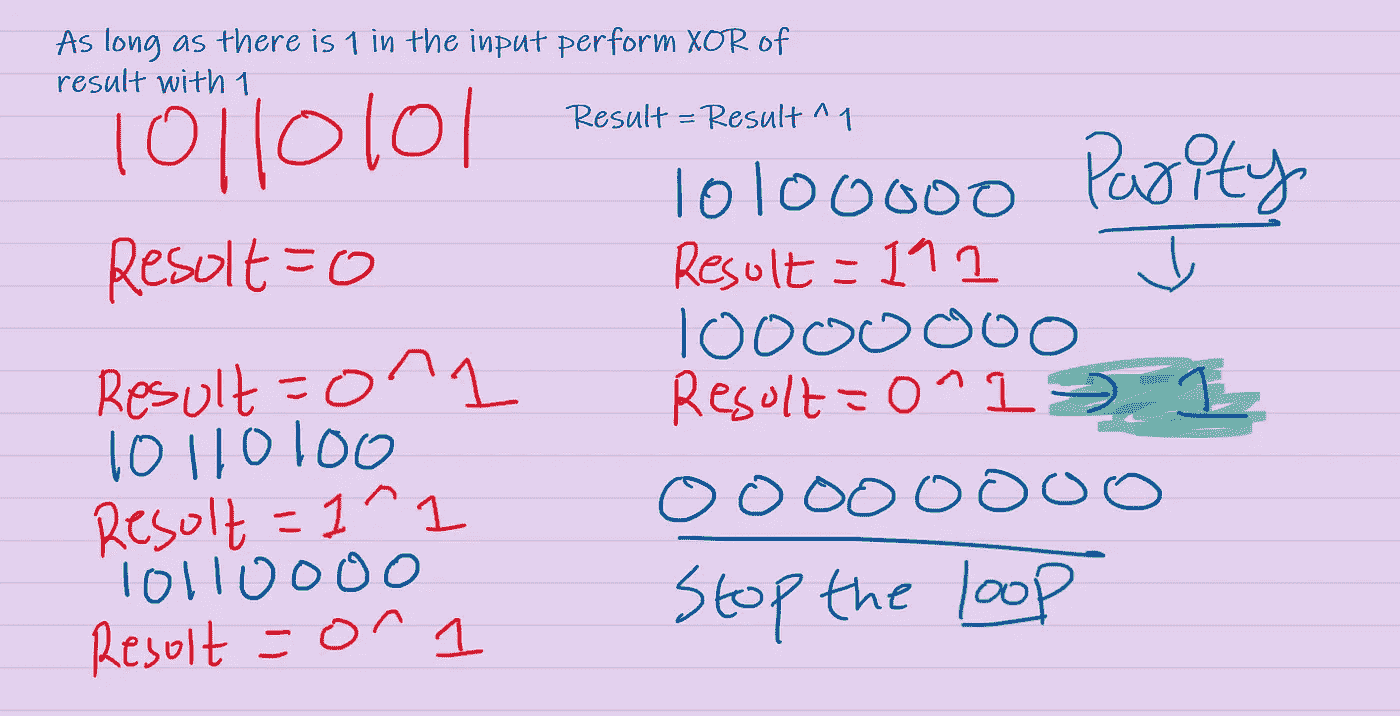 As long as there is 1 in the input perform XOR of
result with 1
10110101
Result = 0
Result = 0 ^ 1
10110100
Result = 1 ^ 1
10110000
Result = 0 ^ 1
Result = Result ^ 1
10100000
Result = 1 ^ 1
10000000
Result = 0 ^ 1 → 1
00000000
Stop the loop
Parity
↓